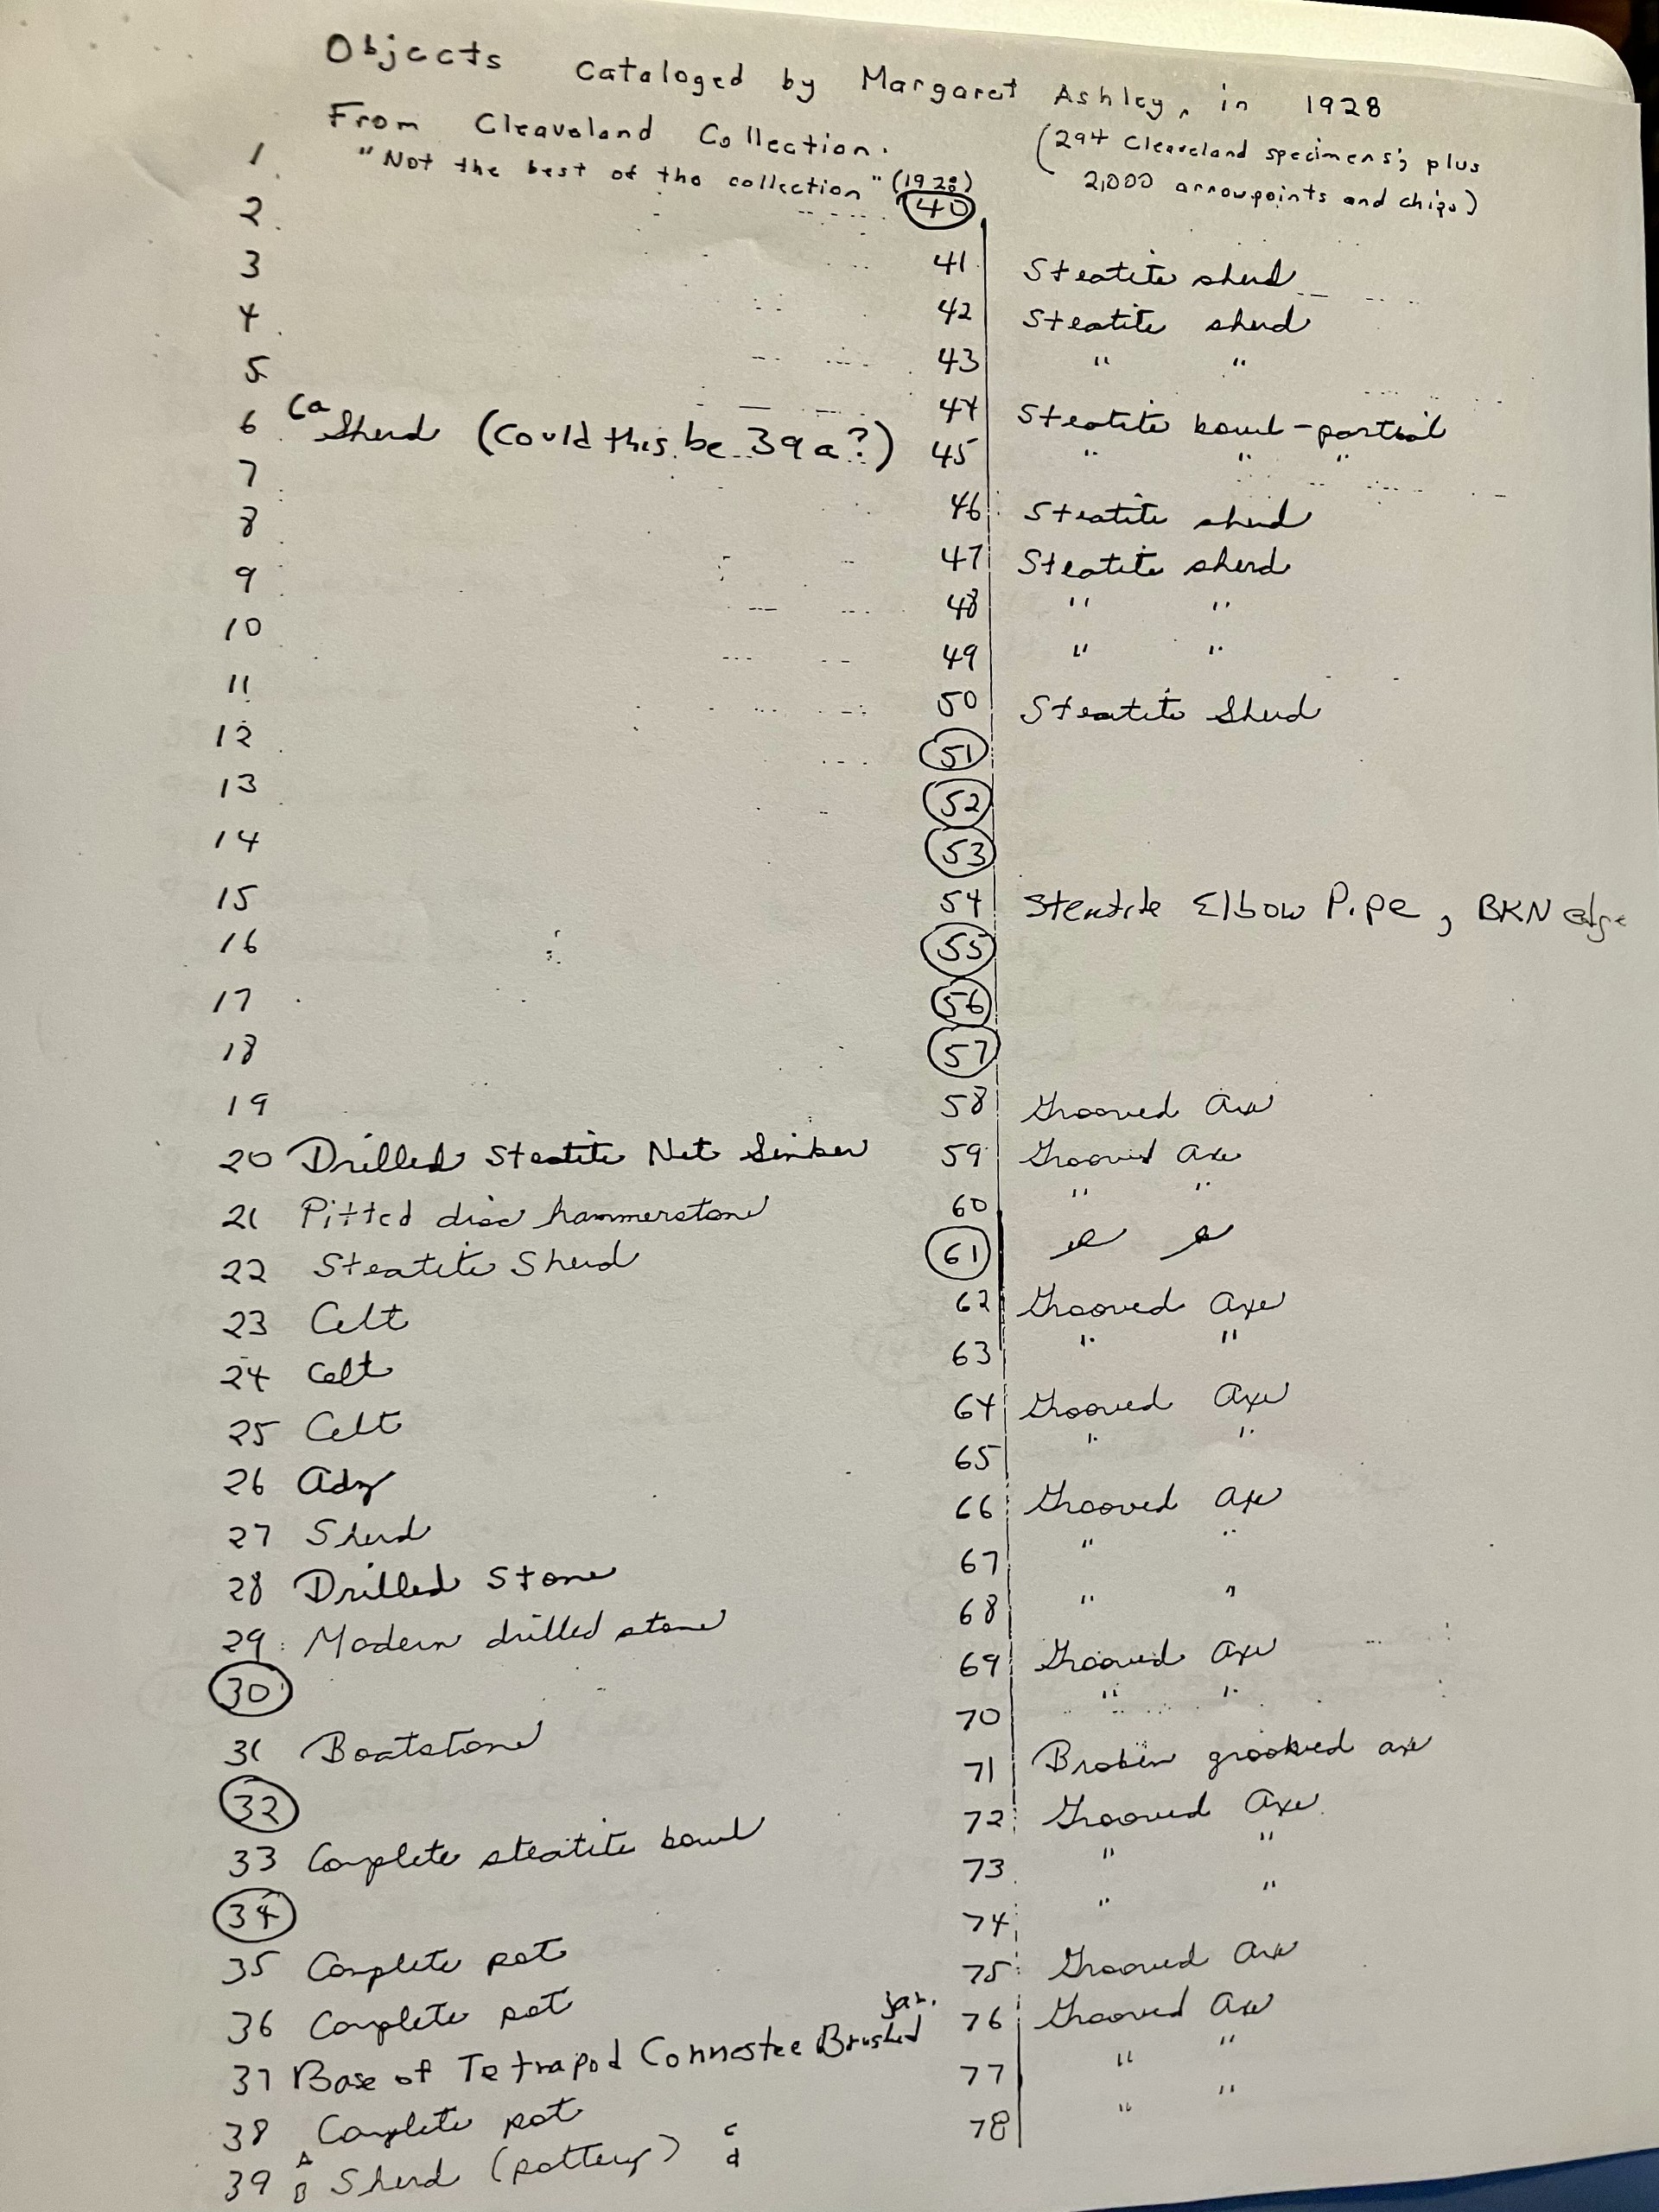 Objects cataloged by Margaret Ashley, in 1928
From Cleaveland Collection.
(294 Cleaveland specimens; plus
2,000 arrowpoints and chips)
1 "Not the best of the collection" (1928)
2
3
4
5
6 6a Sherd (Could this be 39a?)
7
8
9
10
11
12
13
14
15
16
17
18
19
20 Drilled Steatite Net Sinker
21 Pitted disc hammerstone
22 Steatite Sherd
23 Celt
24 Celt
25 Celt
26 Adz
27 Sherd
28 Drilled Stone
29 Modern drilled stone
30
31 Boatstone
32
33 Complete steatite bowl
34
35 Complete pot
36 Complete pot
37 Base of Tetrapod Connestee Brushed jar.
38 Complete pot
39 A B Sherd (pottery) c d
40
41 Steatite sherd
42 Steatite sherd
43 " "
44 Steatite bowl-partial
45 " " "
46 Steatite sherd
47 Steatite sherd
48 " "
49 " "
50 Steatite Sherd
51
52
53
54 Steatite Elbow Pipe, BKN edge
55
56
57
58 Grooved Axe
59 Grooved Axe
60 " "
61
62 Grooved Axe
63 " "
64 Grooved Axe
65 " "
66 Grooved Axe
67 " "
68 " "
69 Grooved Axe
70 " "
71 Broken grooved axe
72 Grooved Axe
73 " "
74 " "
75 Grooved Axe
76 Grooved Axe
77 " "
78 " "